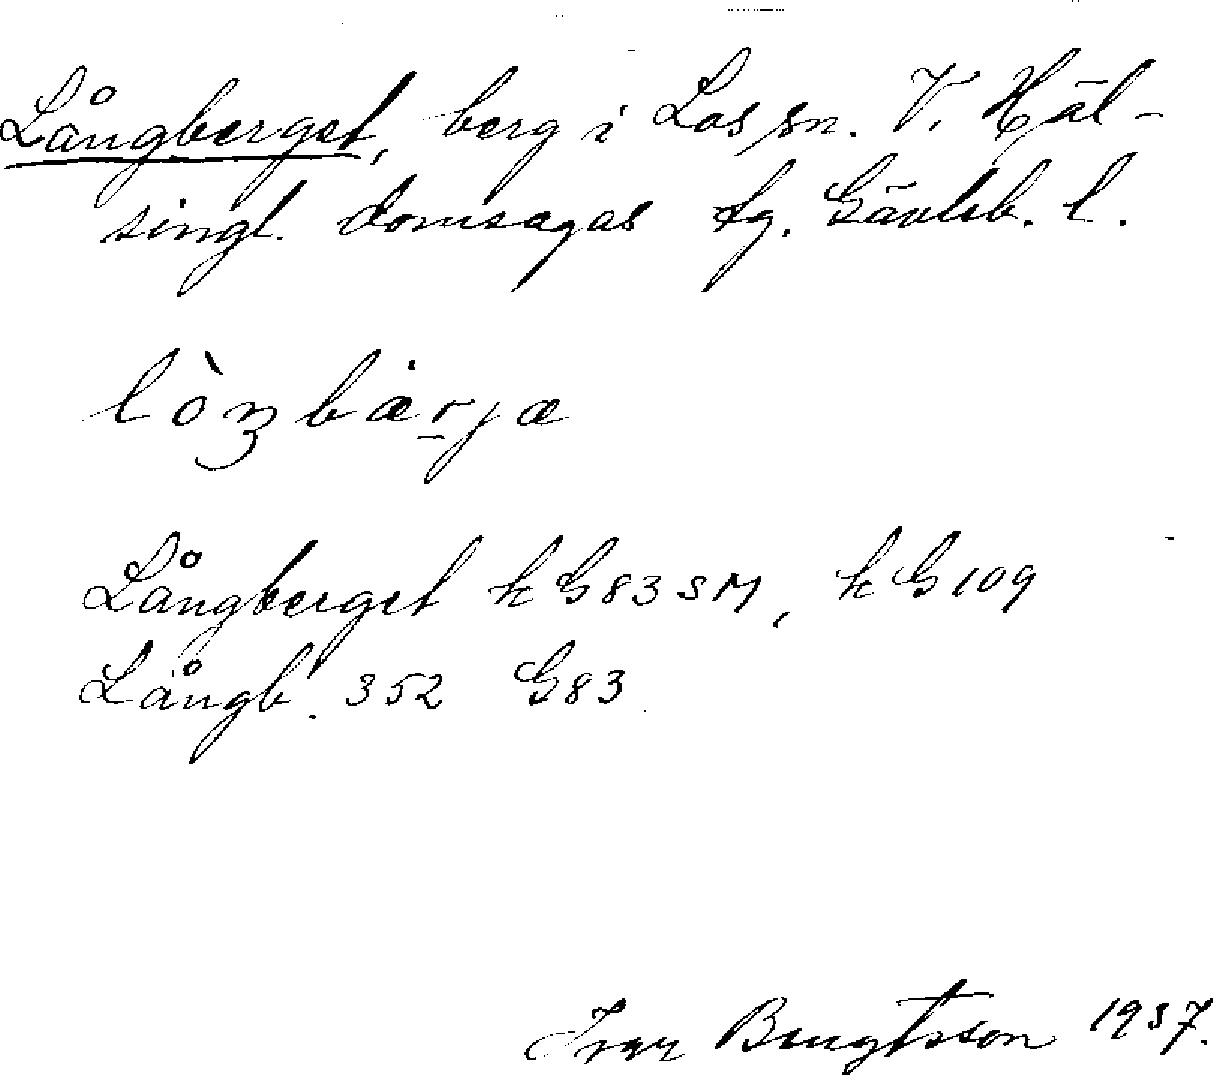 Långberget, berg i Los sn. V. Häl-
singl. domsagas tg. Gävleb. l.
lòŋbærjæ
Långberget kG83SM, kG109
Långb. 352 G83
Ivar Bengtsson 1937.